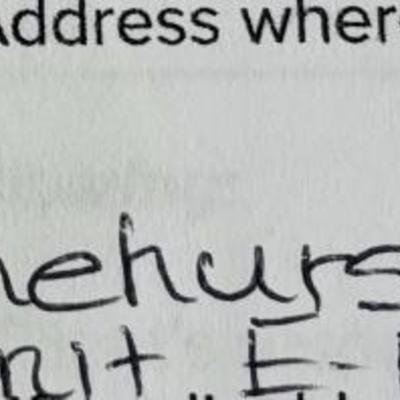 Address wher
nehurs
nit E-